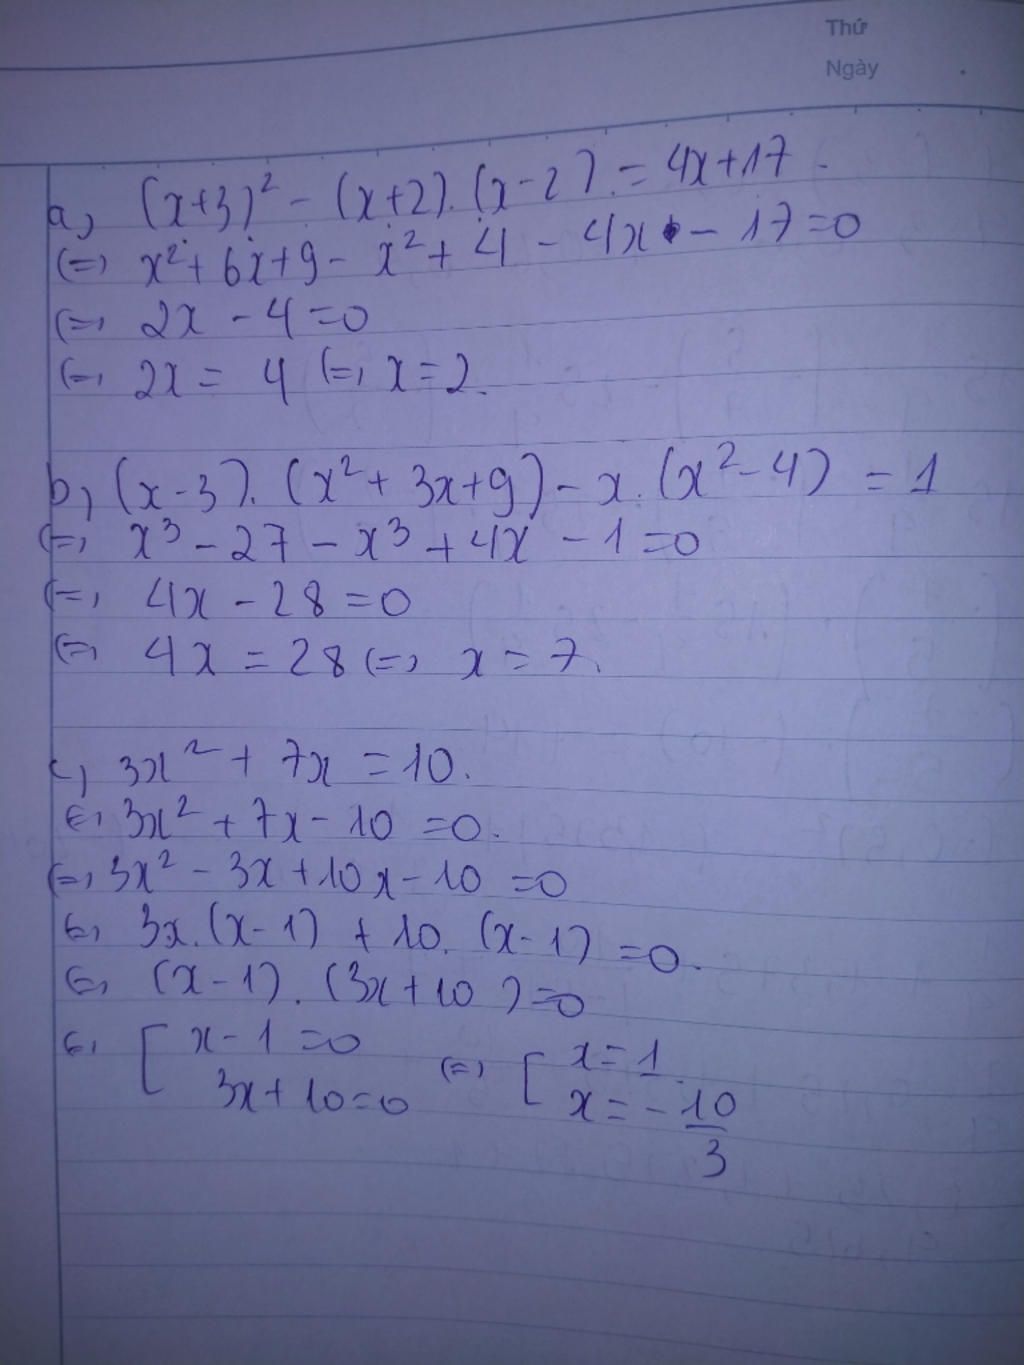 Thứ
Ngày
a, (x+3)² - (x+2).(x-2). = 4x+17
(=) x²+ 6x+9 - x²+ 4 - 4x - 17=0
(=, 2x - 4 =0
(=, 2x = 4 (=, x=2.
b, (x-3). (x²+ 3x+9) - x.(x²-4) = 1
(=, x³ - 27 - x³ + 4x - 1=0
(=, 4x - 28 =0
(=, 4x = 28 (=, x = 7.
c, 3x² + 7x = 10.
(=, 3x² + 7x - 10 =0.
(=, 3x² - 3x +10x - 10 =0
(=, 3x.(x-1) + 10. (x-1) =0.
(=, (x-1). (3x+10)=0
(=, [ x - 1 =0 (=, [ x=1
3x+10=0 x= -10/3